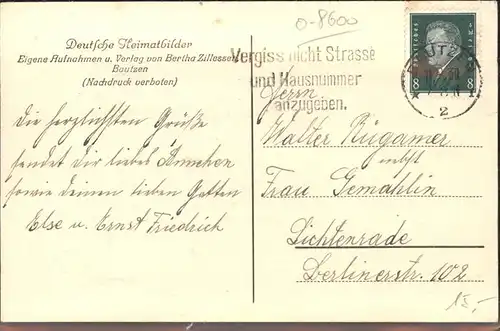 0-8600
Deutsche Heimatbilder
Eigene Aufnahmen u. Verlag von Bertha Zillessen
Bautzen
(Nachdruck verboten)
Vergiss nicht Strasse
und Hausnummer
anzugeben.
8 8
2
Die herzlichsten Grüße
sendet Dir liebes Ännchen
sowie deinen lieben Gatten
Else u. Ernst Friedrich
Herrn
Walter Rügamer
nebst
Frau Gemahlin
Lichtenrade
Berlinerstr. 102